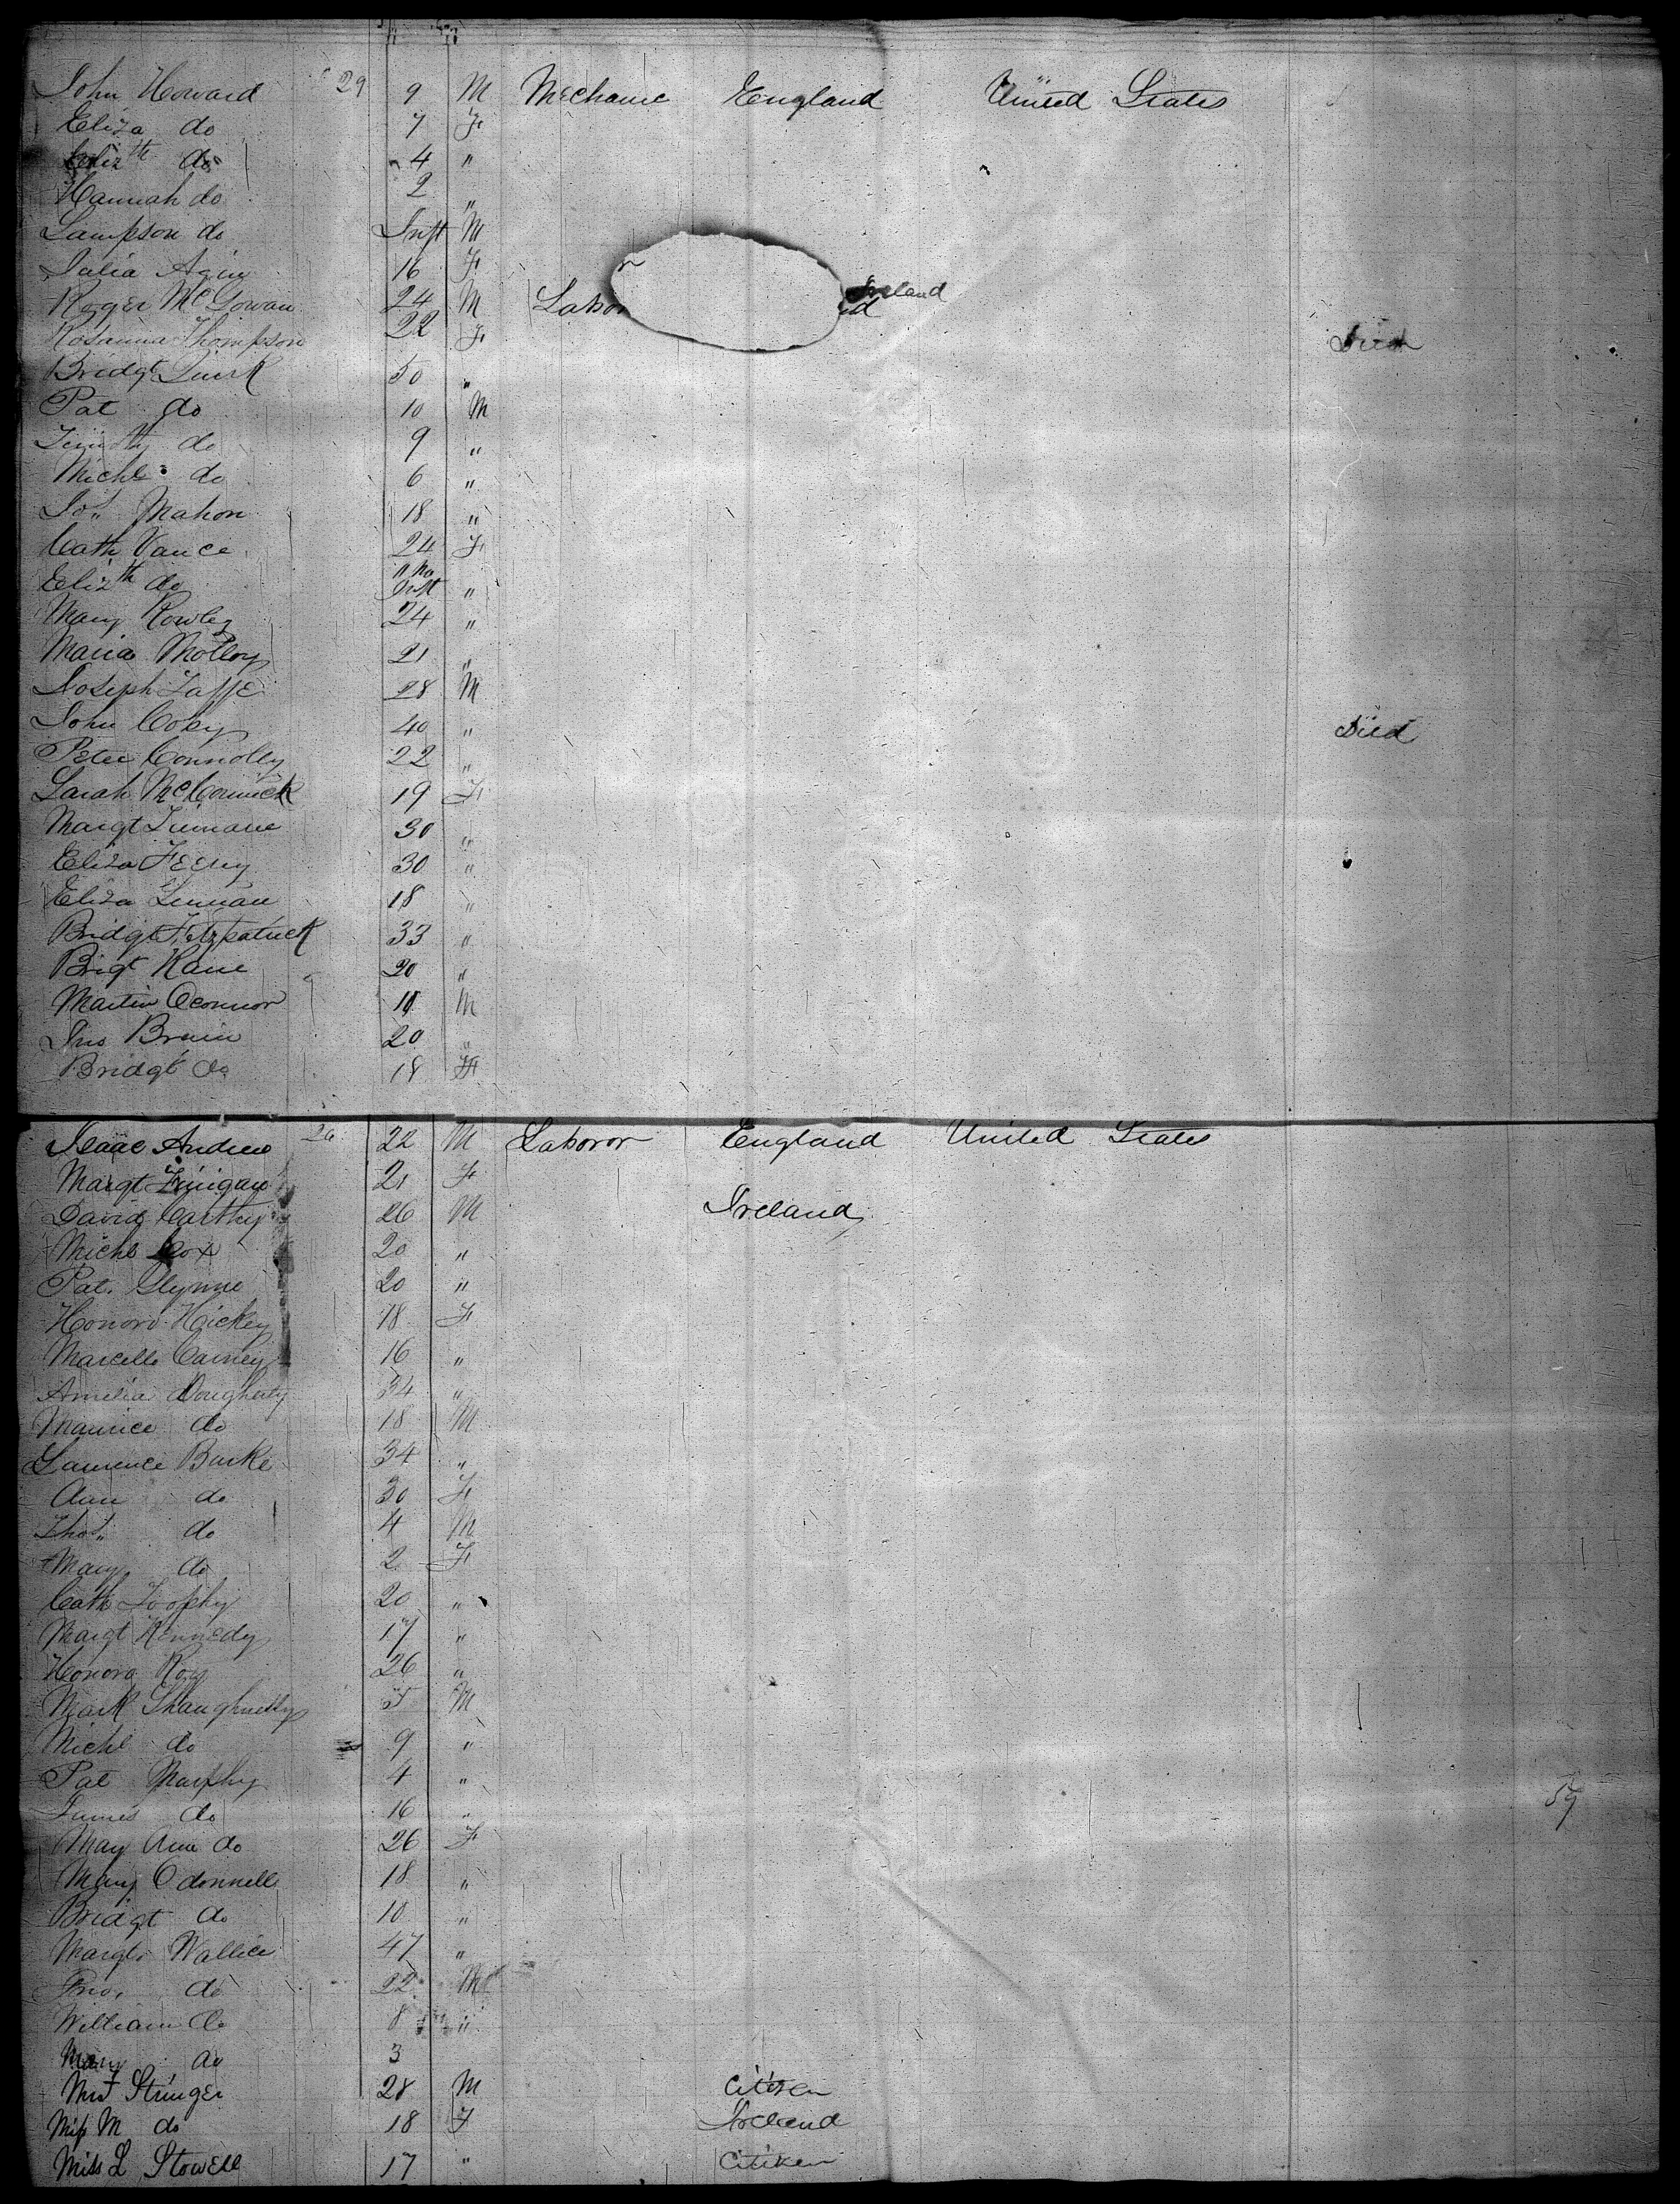 John Howard 29 9 M Mechanic England United States
Eliza do 7 F
Elizth do 4 "
Hannah do 2 "
Sampson do Inft M
Julia Agin 16 F
Ireland
Roger McGowan 24 M Labor d
Rosanna Thompson 22 F Died
Bridgt Quirk 50 "
Pat do 10 M
Timothy do 9 "
Michl do 6 "
Jos Mahon 18 "
Cath Vance 24 F
Elizth do Inft "
Mary Rowley 24 "
Maria Molloy 21 "
Joseph Taffe 28 M
John Coby 40 " Died
Peter Connolly 22 "
Sarah McCormick 19 F
Margt 30 "
Eliza Feeny 30 "
Eliza 18 "
Bridgt Fitzpatrick 33 "
Brigt Kane 20 "
Martin Oconnor 18 M
Jno Bruin 20 "
Bridgt do 18 F
Isaac Andrew 22 M Laboror England United States
Margt Finigan 21 F
David Carthy 26 M Ireland
Michl Cox 20 "
Pat. Glynne 20 "
Honora Hickey 18 F
Marcella Carney 16 "
Amelia Dougherty 34 "
Maurice do 18 M
Laurence Burke 34 "
Ann do 30 F
Thos do 4 M
Mary do 2 F
Cath 20 "
Margt Kennedy 17 "
Honora Roy 26 "
Mark Shaughnessy 5 M
Michl do 9 "
Pat Murphy 4 "
James do 16 " 59
Mary Ann do 26 F
Mary Odonnell 18 "
Bridgt do 10 "
Margt Wallice 47 "
Jno. do 22 M
William do 8 "
Mary do 3
Stringer 28 M Citizen
Miss M do 18 F Ireland
Miss L Stowell 17 " Citizen